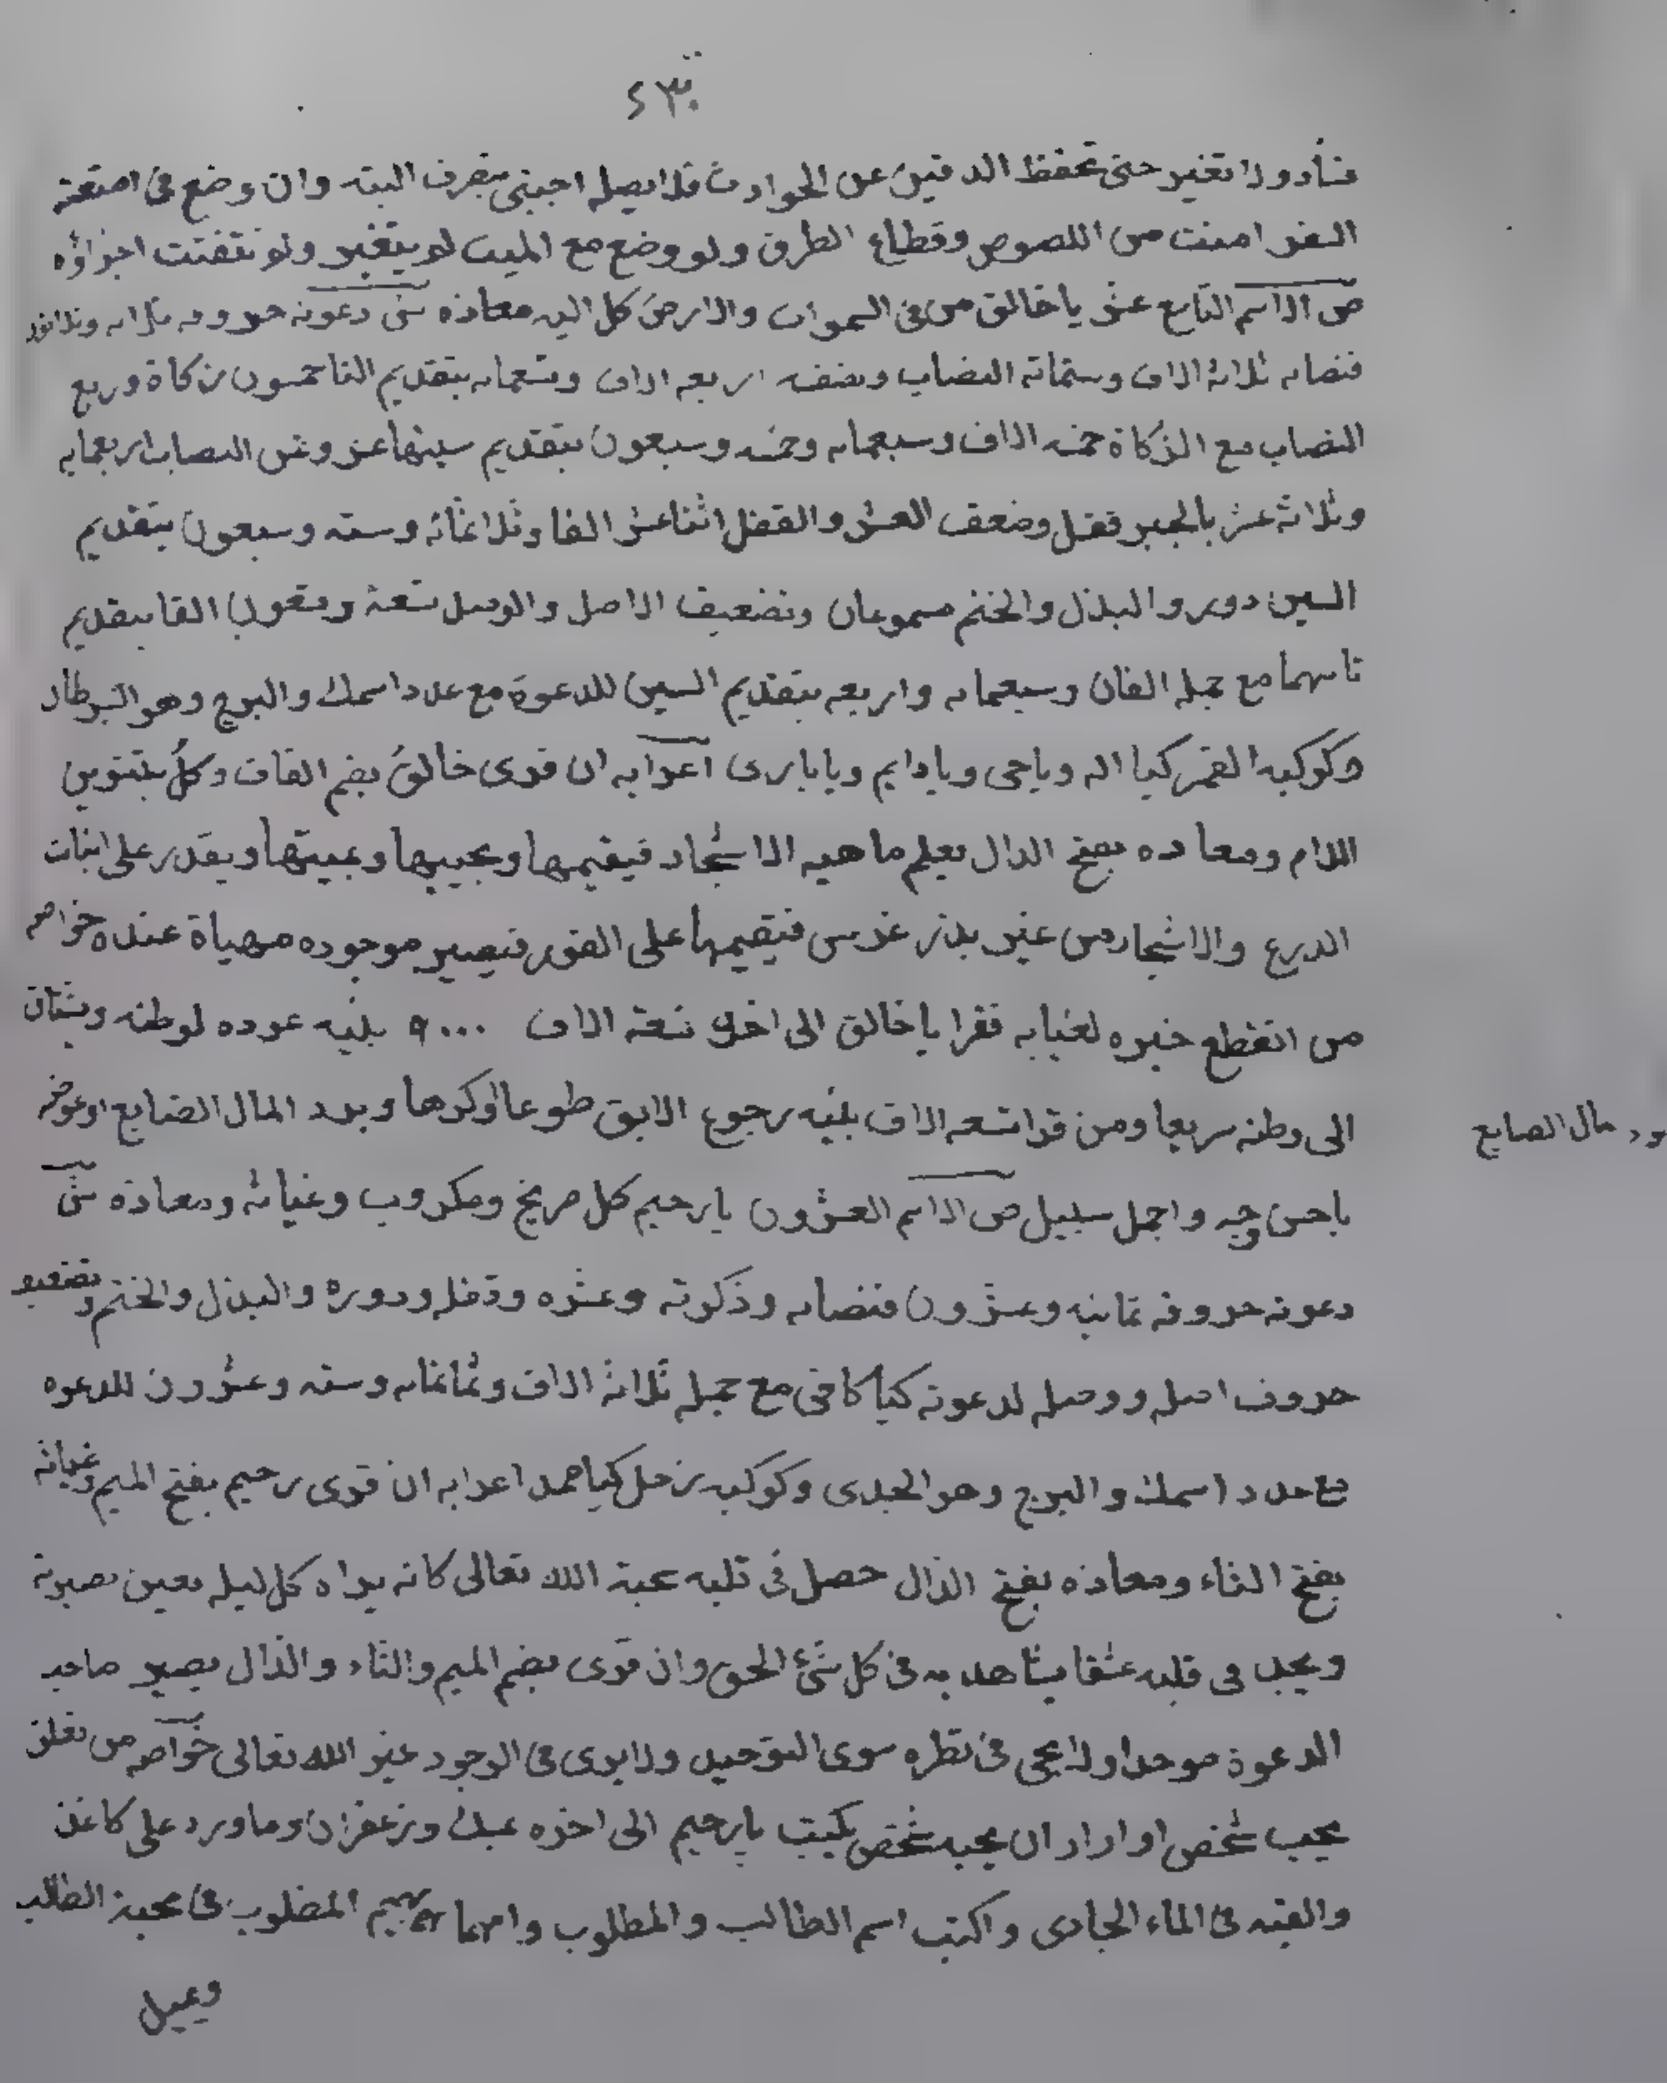 ٢٣٠
فساد ولا تغير حتى تحفظ الدفين عن الحوادث فلا يصله اجنبى بتصرف البته وان وضع فى امتعة
السفر امنت من اللصوص وقطاع الطرق ولو وضع مع الميت لم يتغير ولو تفتتت اجزاؤه
ص الاسم التاسع عشر يا خالق من فى السموات والارض كل اليه معاده دعوته حروفه ثلاثه وثلاثون
فنصابه ثلاثة الاف وستمائة النصاب ونصفه اربعه الاف وتسعمايه بتقديم التا خمسون زكاة وربع
النصاب مع الزكاة خمسه الاف وسبعمايه وخمسه وسبعون بتقديم سينها عشر وثمن النصاب اربعمايه
وثلاثة عشر بالجبر فقفل وضعف العشر والقفل اثنا عشر الفا وثلاثمائه وسته وسبعون بتقديم
السين دور والبذل والختم مسموعان وتضعيف الاصل والوصل تسعة وتسعون الفا بتقديم
تاسهما مع جمله الفان وسبعمايه واربعه بتقديم السين للدعوة مع عدد اسمك والبرج وهو السرطان
وكوكبه القمر كيا اله وياحى ويادايم ويابارى اعرابه ان قرى خالق بضم القاف وكل بتنوين
اللام ومعاده بفتح الدال يعلم ماهيه الاشجار فيقيمها ويحييها ويميتها ويقدر على انبات
الزرع والاشجار من غير بذر غرس فيقيمها على الفور فيصير موجوده مهياة عنده خواصه
من انقطع خبره لغيابه فقرا يا خالق الى اخره تسعة الاف ٩٠٠٠ بنيه عوده لوطنه ويشتاق
الى وطنه سريعا ومن قرا تسعه الاف بنيه رجوع الابق طوعا اوكرها ويرد المال الضايع اوعوضه
مال الضايع
باحسن وجه واجمل سبيل ص الاسم العشرون يا رحيم كل صريخ ومكروب وغياثه ومعاذه
دعوته حروفه ثمانيه وعشرون فنصابه وذكوته وعشره وقفله ودوره والبذل والختم وتضعيف
حروف اصله ووصله لدعوته كيا كافى مع جمله ثلاثة الاف وثمانمايه وسته وعشرون للدعوه
مع عدد اسمك والبرج وهو الجدى وكوكبه زحل كياصمد اعرابه ان قرى رحيم بفتح الميم وغياثه
بفتح الثاء ومعاذه بفتح الذال حصل فى قلبه محبة الله تعالى كانه يراه كل ليله بعين بصيرته
ويجد فى قلبه عشقا يشاهد به فى كل شئ الحق وان قرى بضم الميم والثاء والذال يصير صاحب
الدعوة موحدا ولا يجى فى نظره سوى التوحيد ولا يرى فى الوجود غير الله تعالى خواصه من تعلق
بحب شخص او اراد ان يحبه شخص يكتب يارحيم الى اخره بمسك وزعفران وماورد على كاغذ
والقيه فى الماء الجارى واكتب اسم الطالب والمطلوب يهيم المطلوب فى محبة الطالب
ويميل